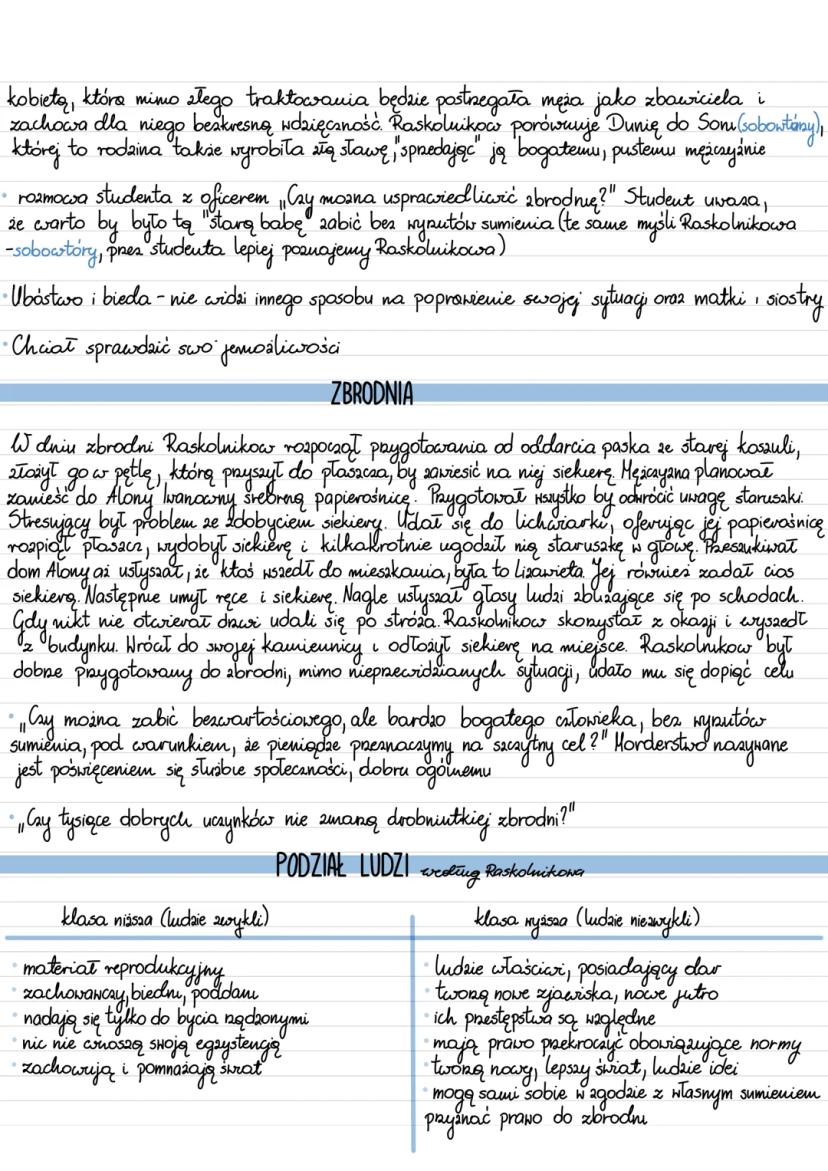 kobietą, która mimo złego traktowania będzie postrzegała męża jako zbawiciela i
zachowa dla niego bezkresną wdzięczność. Raskolnikow porównuje Dunię do Soni (sobowtóry),
której to rodzina także wyrobiła złą sławę, "sprzedając" ją bogatemu, pustemu mężczyźnie
• rozmowa studenta z oficerem „Czy można usprawiedliwić zbrodnię?" Student uważa,
że warto by było tą "starą babę" zabić bez wyrzutów sumienia (te same myśli Raskolnikowa
-sobowtóry, przez studenta lepiej poznajemy Raskolnikowa)
• Ubóstwo i bieda - nie widzi innego sposobu na poprawienie swojej sytuacji oraz matki i siostry
• Chciał sprawdzić swoje możliwości
ZBRODNIA
W dniu zbrodni Raskolnikow rozpoczął przygotowania od oddarcia paska ze starej koszuli,
złożył go w pętlę, którą przyszył do płaszcza, by zawiesić na niej siekierę. Mężczyzna planował
zanieść do Alony Iwanowny srebrną papierośnicę. Przygotował wszystko by odwrócić uwagę staruszki.
Stresujący był problem ze zdobyciem siekiery. Udał się do lichwiarki, oferując jej papierośnicę
rozpiął płaszcz, wydobył siekierę i kilkakrotnie ugodził nią staruszkę w głowę. Przeszukiwał
dom Alony aż usłyszał, że ktoś wszedł do mieszkania, była to Lizawieta. Jej również zadał cios
siekierą. Następnie umył ręce i siekierę. Nagle usłyszał głosy ludzi zbliżające się po schodach.
Gdy nikt nie otwierał drzwi udali się po stróża. Raskolnikow skorzystał z okazji i wyszedł
z budynku. Wrócił do swojej kamienicy i odłożył siekierę na miejsce. Raskolnikow był
dobrze przygotowany do zbrodni, mimo nieprzewidzianych sytuacji, udało mu się dopiąć celu
• „Czy można zabić bezwartościowego, ale bardzo bogatego człowieka, bez wyrzutów
sumienia, pod warunkiem, że pieniądze przeznaczymy na szczytny cel?" Morderstwo nazywane
jest poświęceniem się służbie społeczności, dobru ogólnemu
• „Czy tysiące dobrych uczynków nie zmażą drobniutkiej zbrodni?"
PODZIAŁ LUDZI według Raskolnikowa
klasa niższa (ludzie zwykli)
• materiał reprodukcyjny
• zachowawczy, biedni, poddani
• nadają się tylko do bycia rządzonymi
• nic nie wnoszą swoją egzystencją
• zachowują i pomnażają świat
klasa wyższa (ludzie niezwykli)
• ludzie właściwi, posiadający dar
• tworzą nowe zjawiska, nowe jutro
• ich przestępstwa są względne
• mają prawo przekroczyć obowiązujące normy
• tworzą nowy, lepszy świat, ludzie idei
• mogą sami sobie w zgodzie z własnym sumieniem
przyznać prawo do zbrodni